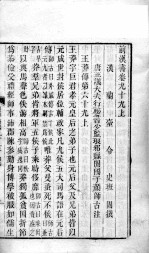 前漢書卷九十九上
漢蘭臺令史班固撰
唐正議大夫行祕書少監琅邪縣開國子顏師古注
王莽傳第六十九上
王莽字巨君孝元皇后之弟子也元后父及兄弟皆以
元成世封侯居位輔政家凡九侯五大司馬語在元后
傳 唯莽父曼蚤死不侯
莽羣兄弟皆將軍五侯子乘時侈靡
以輿馬聲色佚游相高 莽獨孤貧因折節
為恭儉受禮經師事沛郡陳參勤身博學被服如儒